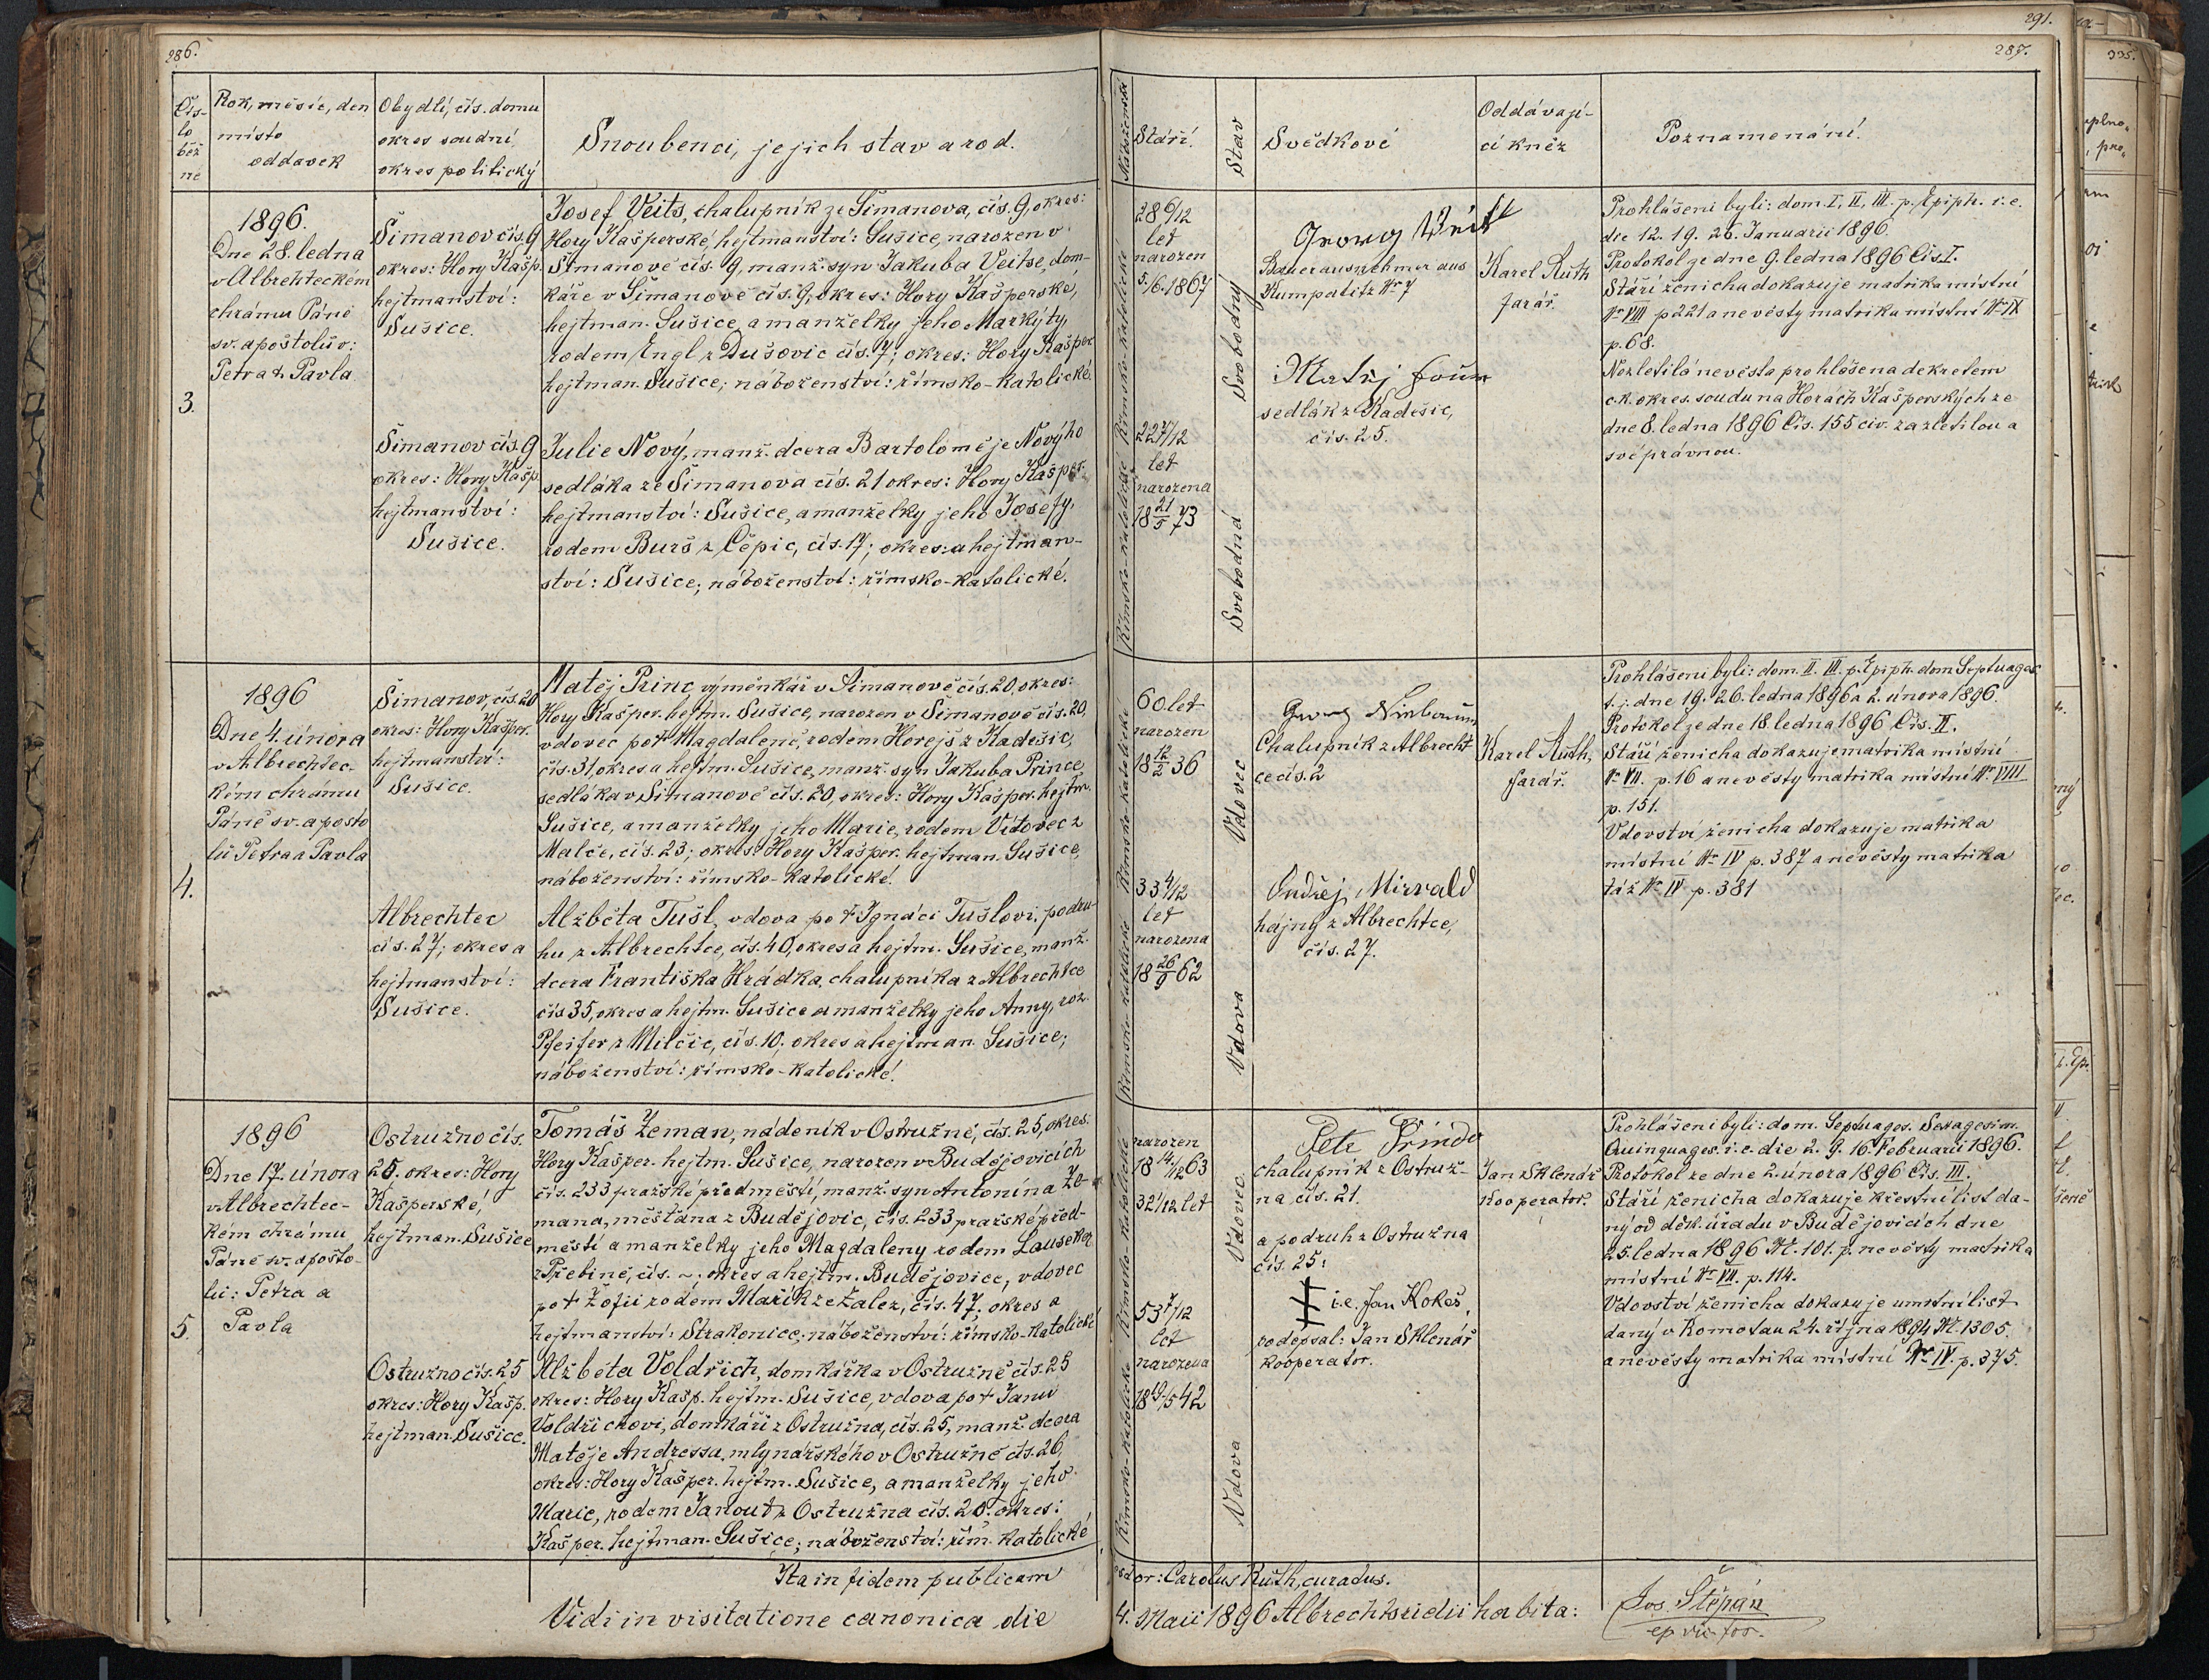 286.
Čís-
lo
běž
né
Rok, měsíc, den
místo
oddavek
Obydlí, čís. domu
okres soudní,
okres politický
Snoubenci, jejich stav a rod.
3.
1896.
Dne 28. ledna
v Albrechteckém
chrámu Páně
sv. apoštolův:
Petra & Pavla
Šimanov čís. 9
okres: Hory Kašp.
hejtmanství:
Sušice.
Josef Veits, chalupník ze Šimanova, čís. 9, okres:
Hory Kašperské, hejtmanství: Sušice, narozen v
Šimanově čís. 9, manž. syn Jakuba Veitse, dom-
káře v Šimanově čís. 9, okres: Hory Kašperské,
hejtman. Sušice, a manželky jeho Markyty,
rodem Engl z Dušovic čís. 7; okres: Hory Kašper
hejtman. Sušice; náboženství: římsko-katolické.
Šimanov čís. 9
okres: Hory Kašp.
hejtmanství:
Sušice.
Julie Nový, manž. dcera Bartoloměje Nového
sedláka ze Šimanova čís. 21 okres: Hory Kašper.
hejtmanství: Sušice, a manželky jeho Josefy,
rodem Burš z Čepic, čís. 17; okres: a hejtman-
ství: Sušice; náboženství: římsko-katolické.
4.
1896
Dne 4. února
v Albrechtec-
kém chrámu
Páně sv. apošto
lů Petra a Pavla
Šimanov, čís. 20
okres: Hory Kašper.
hejtmanství:
Sušice.
Matěj Princ, výměnkář v Šimanově čís. 20, okres:
Hory Kašper. hejtm. Sušice, narozen v Šimanově čís. 20,
vdovec po † Magdaleně, rodem Horejš z Kadešic,
čís. 31, okres a hejtm. Sušice, manž. syn Jakuba Prince
sedláka v Šimanově čís. 20, okres: Hory Kašper. hejtm.
Sušice, a manželky jeho Marie, rodem Vítovec z
Malče, čís. 23; okres: Hory Kašper. hejtman. Sušice,
náboženství: římsko-katolické.
Albrechtec
čís. 27; okres a
hejtmanství:
Sušice.
Alžběta Tušl, vdova po † Ignáci Tušlovi, podru-
hu z Albrechtce, čís. 40, okres a hejtm. Sušice, manž.
dcera Františka Hrádka, chalupníka z Albrechtce
čís 35, okres a hejtm. Sušice a manželky jeho Anny, roz.
Pfeifer z Milčic, čís. 10; okres a hejtman. Sušice;
náboženství: římsko-katolické.
5.
1896
Dne 17. února
v Albrechtec-
kém chrámu
Páně sv. apošto-
lů: Petra a
Pavla
Ostružno čís.
25. okres: Hory
Kašperské,
hejtman. Sušice
Tomáš Zeman, nádeník v Ostružně, čís. 25, okres:
Hory Kašper. hejtm. Sušice, narozen v Budějovicích
čís. 233 pražské předměstí, manž. syn Antonína Ze-
mana, měšťana z Budějovic, čís. 233, pražské před-
městí a manželky jeho Magdaleny rodem Lauseker
z Třebíně, čís. ~; okres a hejtm. Budějovice, vdovec
po † Žofii rodem Mařík ze Zalez, čís. 47, okres a
hejtmanství: Strakonice; náboženství: římsko-katolické
Ostružno čís. 25
okres: Hory Kašp.
hejtman. Sušice.
Alžběta Voldřich, domkářka v Ostružně čís. 25
okres: Hory Kašp. hejtm. Sušice, vdova po † Janu
Voldřichovi, domkáři z Ostružna, čís. 25, manž. dcera
Matěje Andressa, mlynářského v Ostružně čís. 26,
okres: Hory Kašper. hejtm. Sušice, a manželky jeho
Marie, rodem Janout z Ostružna čís. 20. okres:
Kašper. hejtman. Sušice; náboženství: řím. katolické
Ita in fidem publicam
Vidi in visitatione canonica die
291.
287.
Náboženství
Stáří.
Stav
Svědkové
Oddávají-
cí kněz
Poznamenání.
Římsko-katolické
28 6/12
let
narozen
5./6. 1867
Svobodný
Georg Veit
Bauerausnehmer aus
Kumpatitz Nr 7
Matěj
sedlák z Kadešic,
čís. 25.
Karel Ruth
farář.
Prohlášeni byli: dom. I, II, III. p. Epiph. i. e.
die 12. 19. 26. Januarii 1896.
Protokol ze dne 9. ledna 1896 Čís. I.
Stáří ženicha dokazuje matrika místní
Nr VIII p 221 a nevěsty matrika místní Nr IX
p. 68.
Nezletilá nevěsta prohlášena dekretem
c.k. okres. soudu na Horách Kašperských ze
dne 8. ledna 1896 Čís. 155 civ. za zletilou a
svéprávnou.
Římsko-katolické
22 7/12
let
narozena
18 21/5 73
Svobodná
Římsko-katolické
60 let
narozen
18 12/2 36
Vdovec
Georg Nirbauer
Chalupník z Albrecht
ce čís. 2
Ondřej Mirvald
hájný z Albrechtce,
čís. 27.
Karel Ruth,
farář.
Prohlášeni byli: dom. II. III. p. Epiph. dom Septuages.
t. j. dne 19. 26. ledna 1896 a 2. února 1896.
Protokol ze dne 18. ledna 1896 Čís. II.
Stáří ženicha dokazuje matrika místní
Nr VII. p. 16 a nevěsty matrika místní Nr VIII
p. 151.
Vdovství ženicha dokazuje matrika
místní Nr IV p. 387 a nevěsty matrika
táž Nr IV p. 381
Římsko-katolické
33 4/12
let
narozena
18 26/9 62
Vdova
Římsko-katolické
narozen
18 14/12 63
32 1/12 let
Vdovec
chalupník z Ostruž-
na čís. 21.
a podruh z Ostružna
čís. 25:
i.e. Jan Kokeš,
podepsal: Jan Sklenář
kooperator.
Jan Sklenář
kooperator.
Prohlášeni byli: dom. Septuages. Sexagesim.
Quinquages. i. e. die 2. 9. 16. Februarii 1896.
Protokol ze dne 2. února 1896 Čís. III.
Stáří ženicha dokazuje křestní list da-
ný od děk. úřadu v Budějovicích dne
25. ledna 1896 N. 101. p. nevěsty matrika
místní Nr VII. p. 114.
Vdovství ženicha dokazuje úmrtní list
daný v Komotau 24. října 1894 N. 1305.
a nevěsty matrika místní Nr IV. p. 375.
Římsko-katolické
53 7/12
let
narozena
18 19/5 42
Vdova
Carolus Ruth, curatus.
4. Maii 1896 Albrechtsridii habita:
Jos. Štěpán